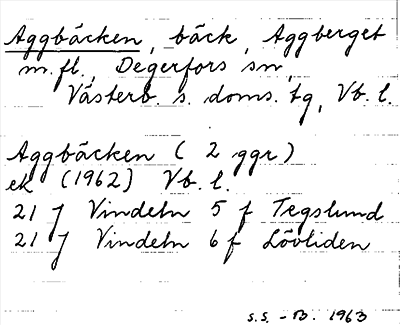 Aggbäcken, bäck, Aggberget
m. fl., Degerfors sn,
Västerb. s. doms. tg, Vb. l.
Aggbäcken (2 ggr)
ek (1962) Vb. l.
21 J Vindeln 5 f Tegslund
21 J Vindeln 6 f Lövliden
S.S. - B. 1963